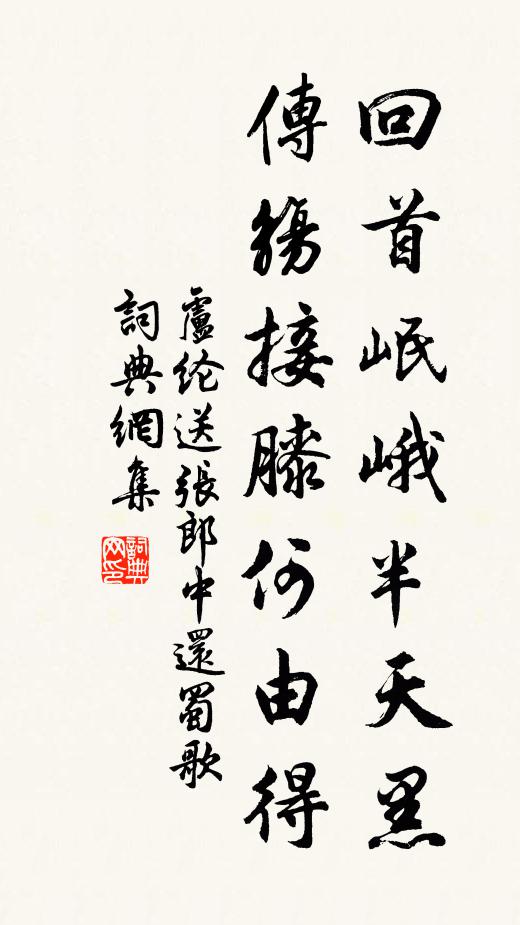 回首岷峨半天黑
傳觴接膝何由得
盧纶送張郎中還蜀歌
詞典網集
詞典網印